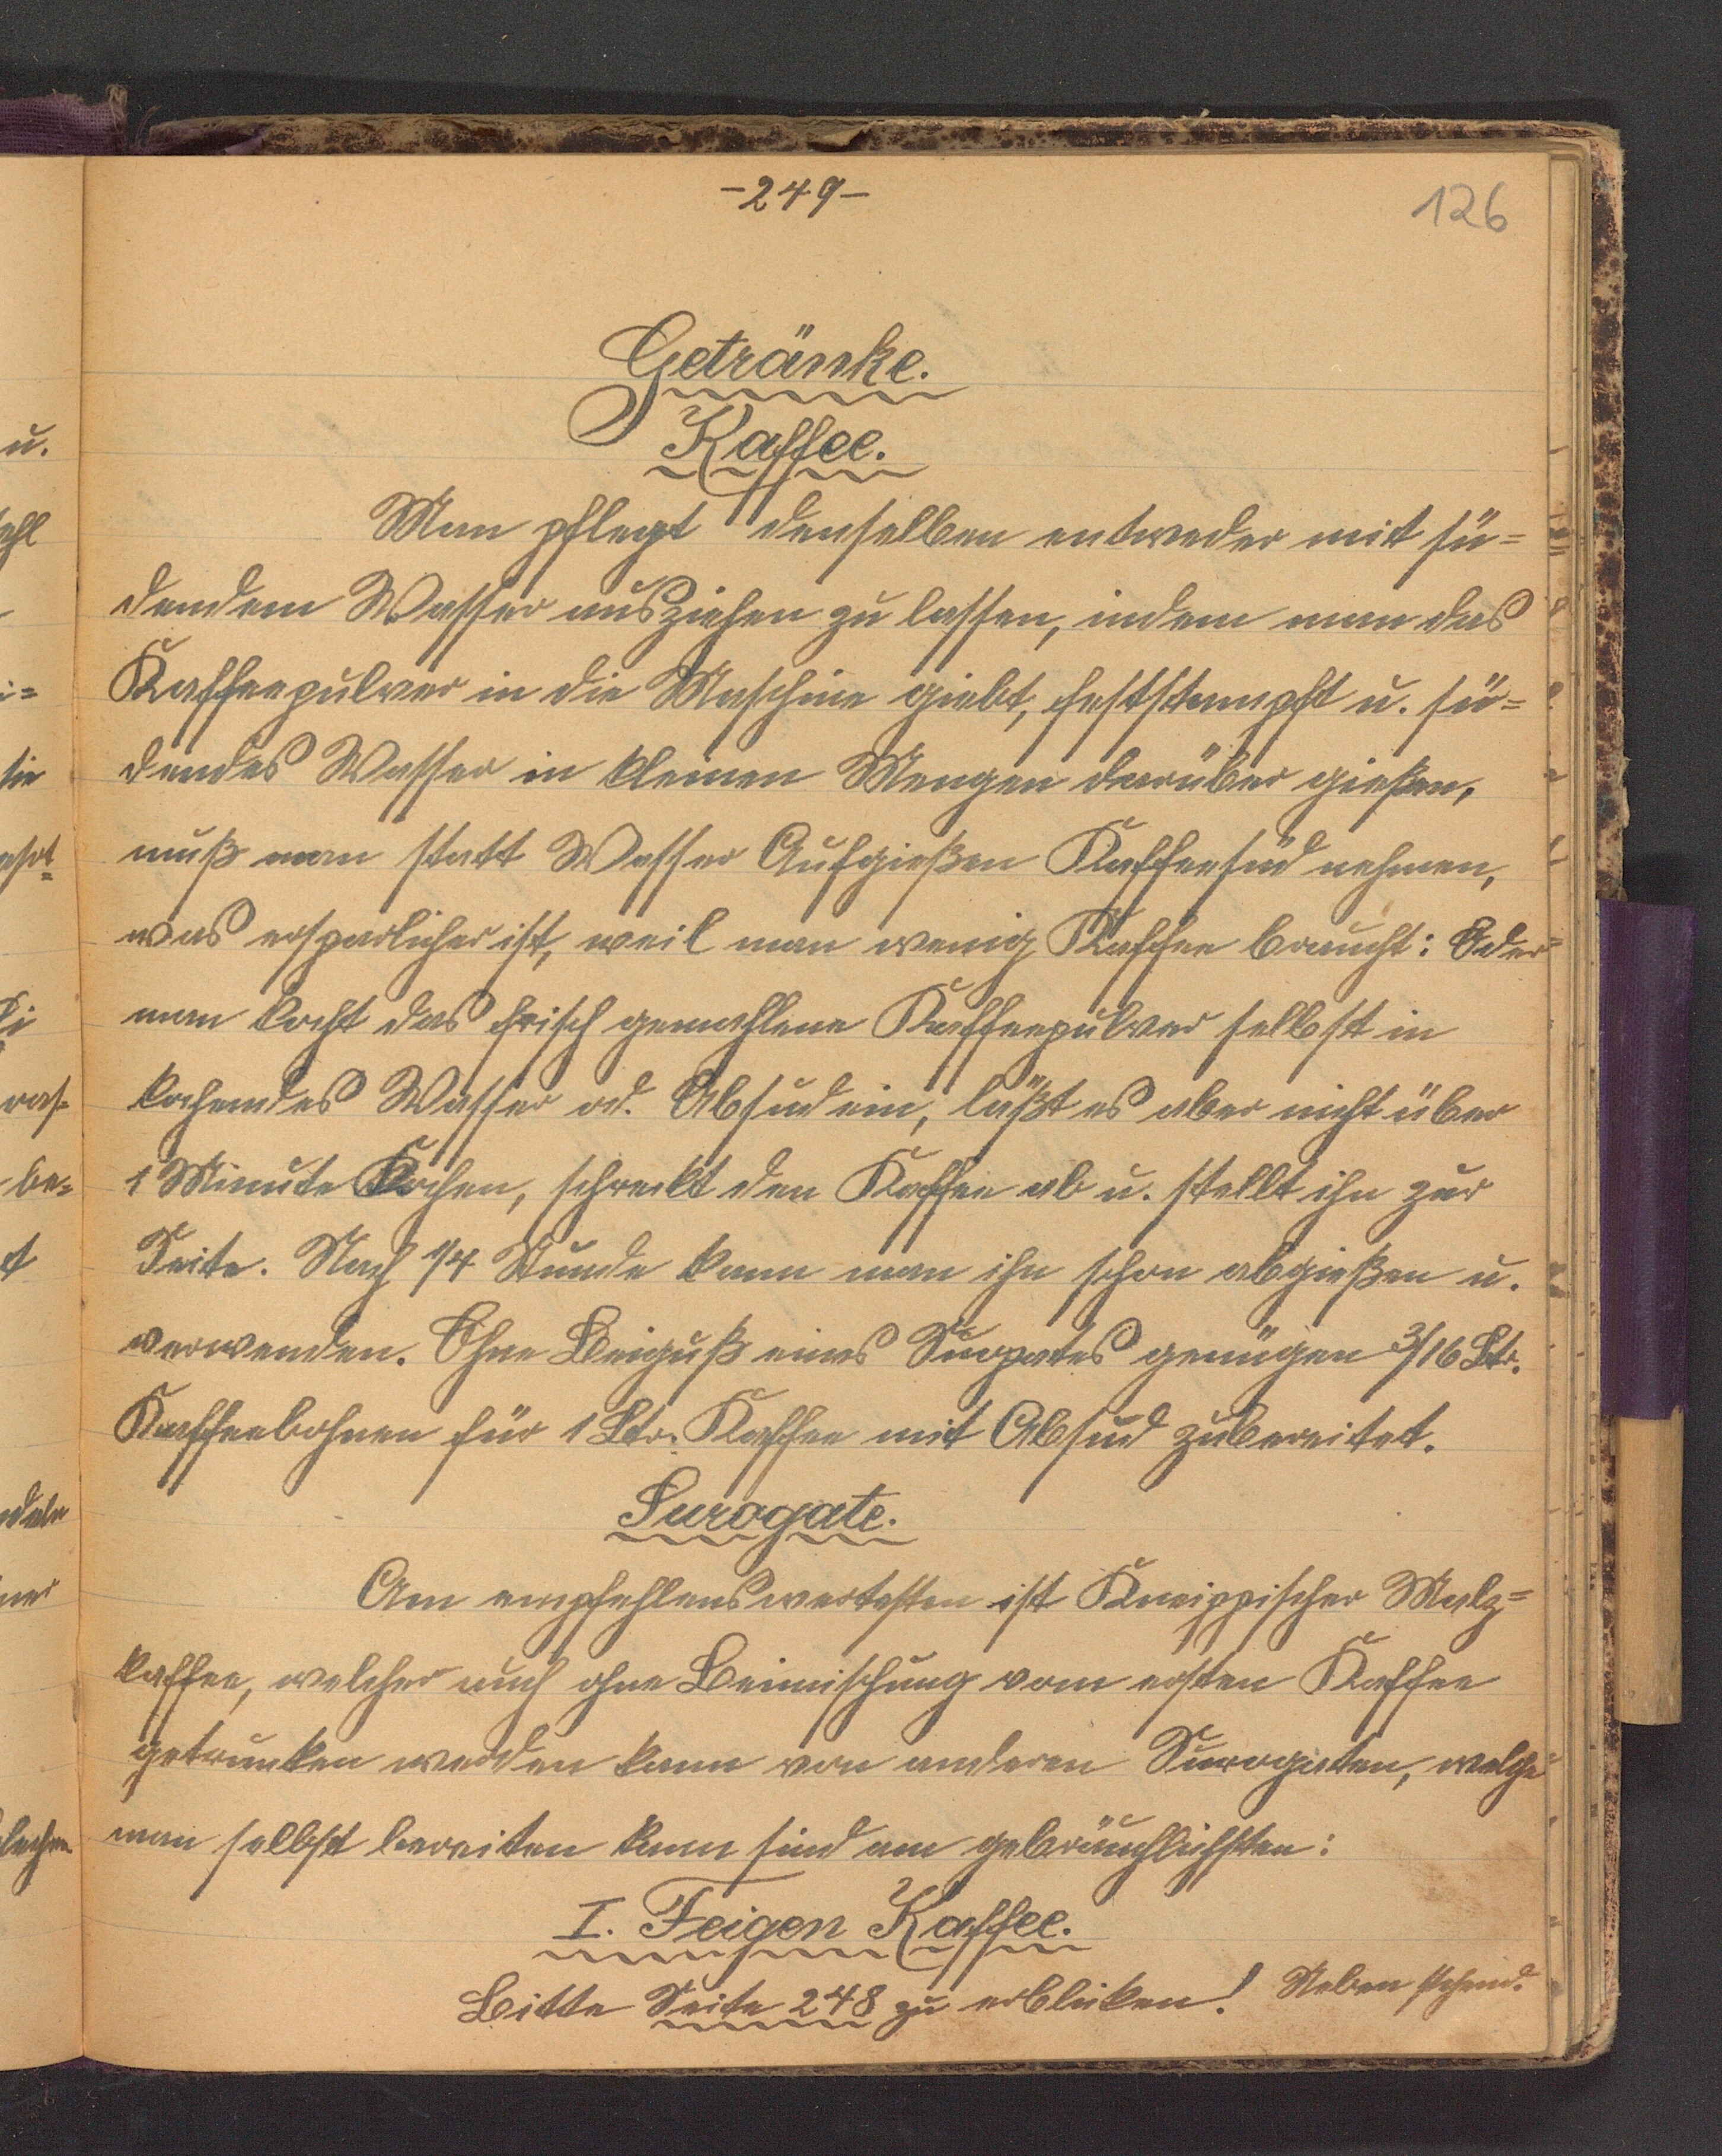 -249-
126
Getränke.
Kaffee.
Man pflegt denselben entweder mit sü=
dendem Wasser ausziehen zu lassen, indem man das
Kaffeepulver in die Maschine giebt, feststampft u. sü=
dendes Wasser in kleinen Mengen darüber gießen,
muß man statt Wasser Aufgießen Kaffeesud nehmen,
was ersparlicher ist, weil man wenig Kaffee braucht: Oder
man kocht das frisch gemahlene Kaffeepulver selbst in
kochendes Wasser od. Absud ein, läßt es aber nicht über
1 Minute Kochen, schreckt den Kaffee ab u. stellt ihn zur
Seite. Nach 1/4 Stunde kann man ihn schon abgießen u.
verwenden. Ohne Beiguß eines genügen 3/16 Ltr.
Kaffeebohnen für 1 Ltr. Kaffee mit Absud zubereitet.
Surogate.
Am empfehlenswertesten ist Kneippischer Malz=
kaffee, welcher auch ohne Beimischung vom ersten Kaffee
getrunken werden kann von anderen Surogaten, welche
man selbst bereiten kann sind am gebräuchlichsten:
I. Feigen Kaffee.
Bitte Seite 248 zu erblicken! Neben stehend.
u.
ehl
i=
sie
be=
t